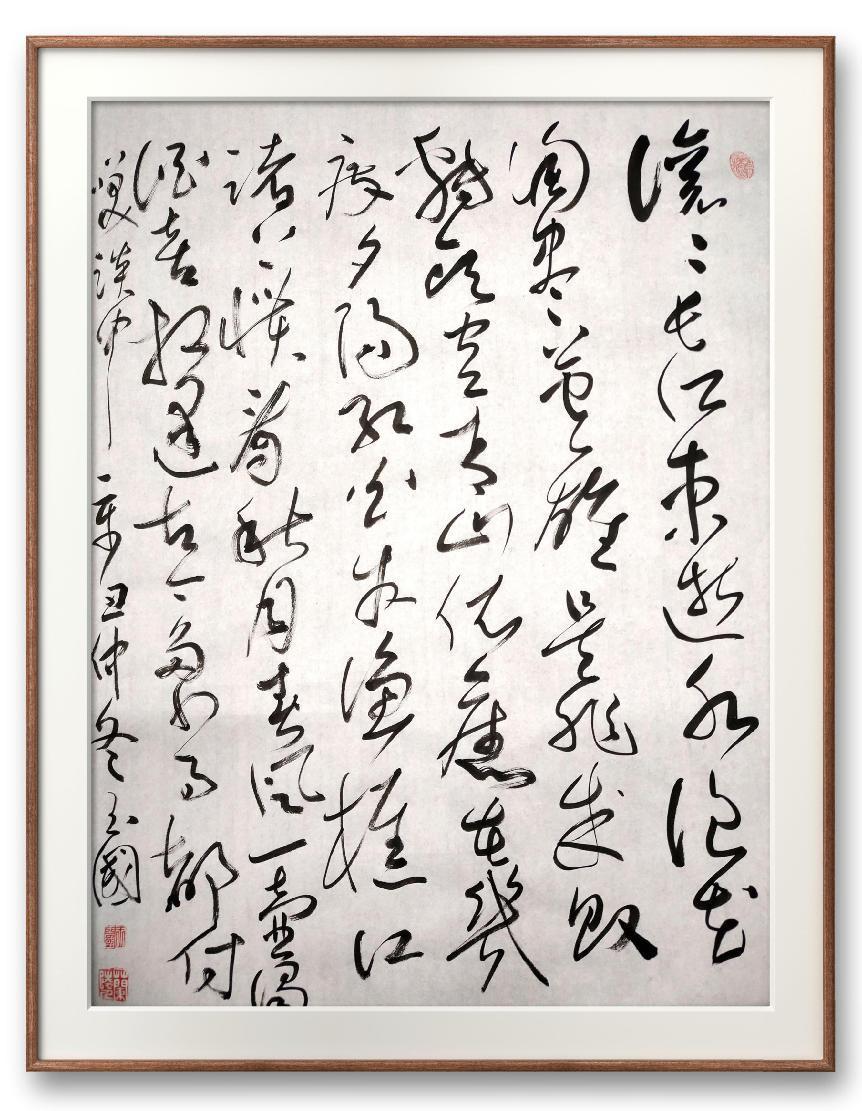 滚〻长江东逝水浪花
淘尽英雄是非成败
转头空青山依旧在几
度夕阳红白发渔樵江
渚上惯看秋月春风一壶浊
酒喜相逢古今多少事都付
笑谈中 辛丑仲冬 玉国